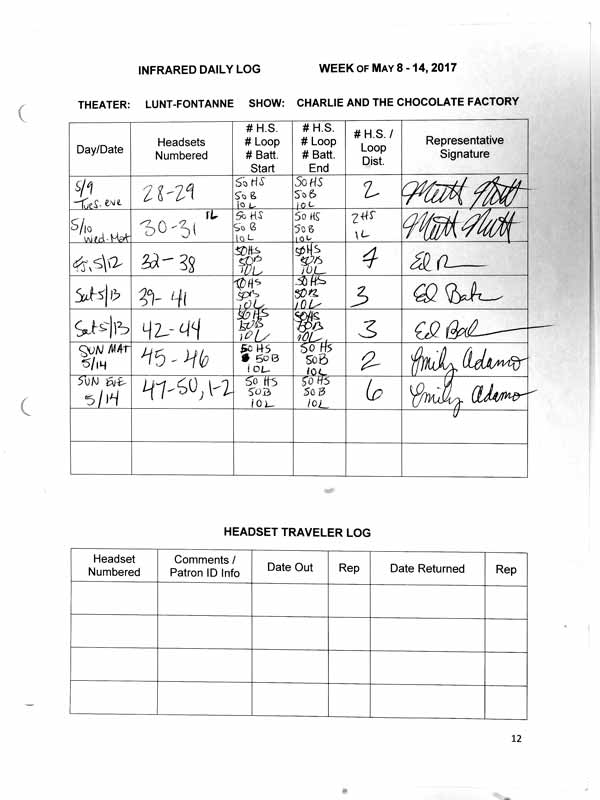 INFRARED DAILY LOG WEEK OF MAY 8 - 14, 2017
THEATER: LUNT-FONTANNE SHOW: CHARLIE AND THE CHOCOLATE FACTORY
Day/Date
Headsets
Numbered
# H.S.
# Loop
# Batt.
Start
# H.S.
# Loop
# Batt.
End
# H.S. /
Loop
Dist.
Representative
Signature
5/9
Tues. eve
28-29
50 HS
50 B
10 L
50 HS
50 B
10 L
2
5/10
Wed. Mat
30-31 1L
50 HS
50 B
10 L
50 HS
50 B
10 L
2 HS
1L
5/12
32-38
50 HS
50B
10 L
50 HS
50B
10 L
7
Ed
Sat 5/13
39-41
50B
10 L
50 HS
50B
10 L
3
Ed
Sat 5/13
42-44
50 HS
50B
10 L
50 HS
50B
10 L
3
Ed
SUN MAT
5/14
45-46
50 HS
50B
10 L
50 HS
50B
10 L
2
Emily Adamo
SUN EVE
5/14
47-50, 1-2
50 HS
50B
10 L
50 HS
50B
10 L
6
Emily Adamo
HEADSET TRAVELER LOG
Headset
Numbered
Comments /
Patron ID Info
Date Out
Rep
Date Returned
Rep
12